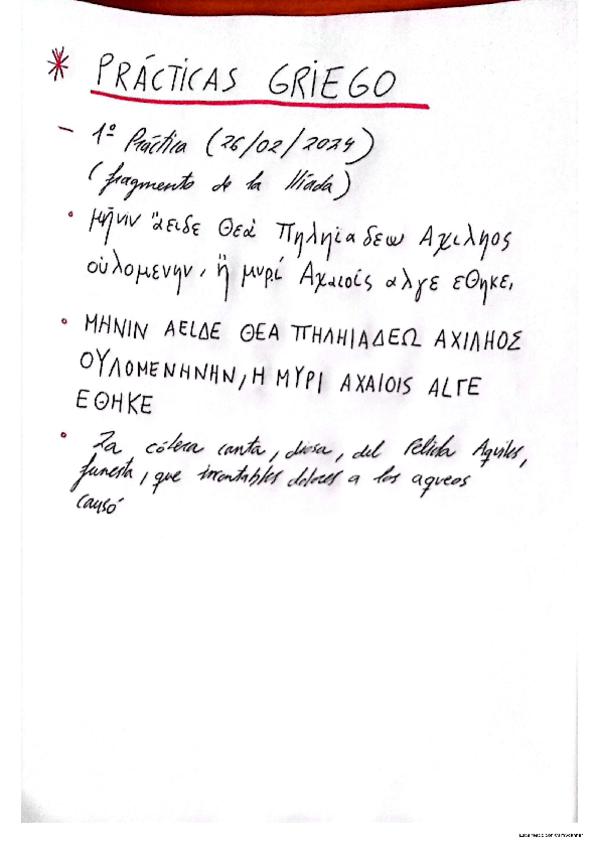 * PRÁCTICAS GRIEGO
- 1º Práctica (26/02/2024)
(fragmento de la Ilíada)
• μῆνιν ἄειδε θεὰ Πηληϊαδεω Αχιληος
οὐλομενην, ἣ μυρί Αχαιοίς αλγε εθηκε.
• ΜΗΝΙΝ ΑΕΙΔΕ ΘΕΑ ΠΗΛΗΙΑΔΕΩ ΑΧΙΛΗΟΣ
ΟΥΛΟΜΕΝΗΝΗΝ, Η ΜΥΡΙ ΑΧΑΙΟΙS ΑLΓΕ
ΕΘΗΚΕ
• La cólera canta, diosa, del Pelida Aquiles,
funesta, que incontables dolores a los aqueos
causó